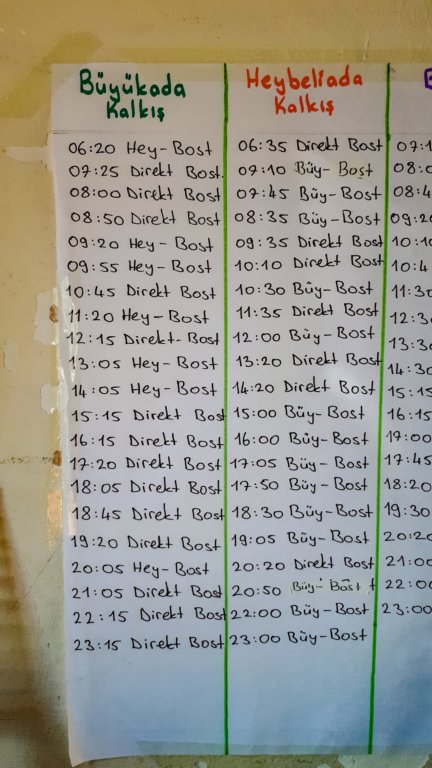 Büyükada
Kalkış
06:20 Hey-Bost
07:25 Direkt Bost.
08:00 Direkt Bost
08:50 Direkt Bost
09:20 Hey-Bost
09:55 Hey-Bost
10:45 Direkt Bost
11:20 Hey-Bost
12:15 Direkt-Bost
13:05 Hey-Bost
14:05 Hey-Bost
15:15 Direkt Bost
16:15 Direkt Bost
17:20 Direkt Bost
18:05 Direkt Bost
18:45 Direkt Bost
19:20 Direkt Bost
20:05 Hey-Bost
21:05 Direkt Bost
22:15 Direkt Bost
23:15 Direkt Bost
Heybeliada
Kalkış
06:35 Direkt Bost
07:10 Büy-Bost
07:45 Büy-Bost
08:35 Büy-Bost
09:35 Direkt Bost
10:10 Direkt Bost
10:30 Büy-Bost
11:35 Direkt Bost
12:00 Büy-Bost
13:20 Direkt Bost
14:20 Direkt Bost
15:00 Büy-Bost
16:00 Büy-Bost
17:05 Büy-Bost
17:50 Büy-Bost
18:30 Büy-Bost
19:05 Büy-Bost
20:20 Direkt Bost
20:50 Büy-Bost
22:00 Büy-Bost
23:00 Büy-Bost
07:1
08:0
08:4
09:20
10:10
10:4
11:30
12:3
13:30
14:30
15:15
16:15
17:00
17:45
18:20
19:30
20:20
21:00
22:00
23:00